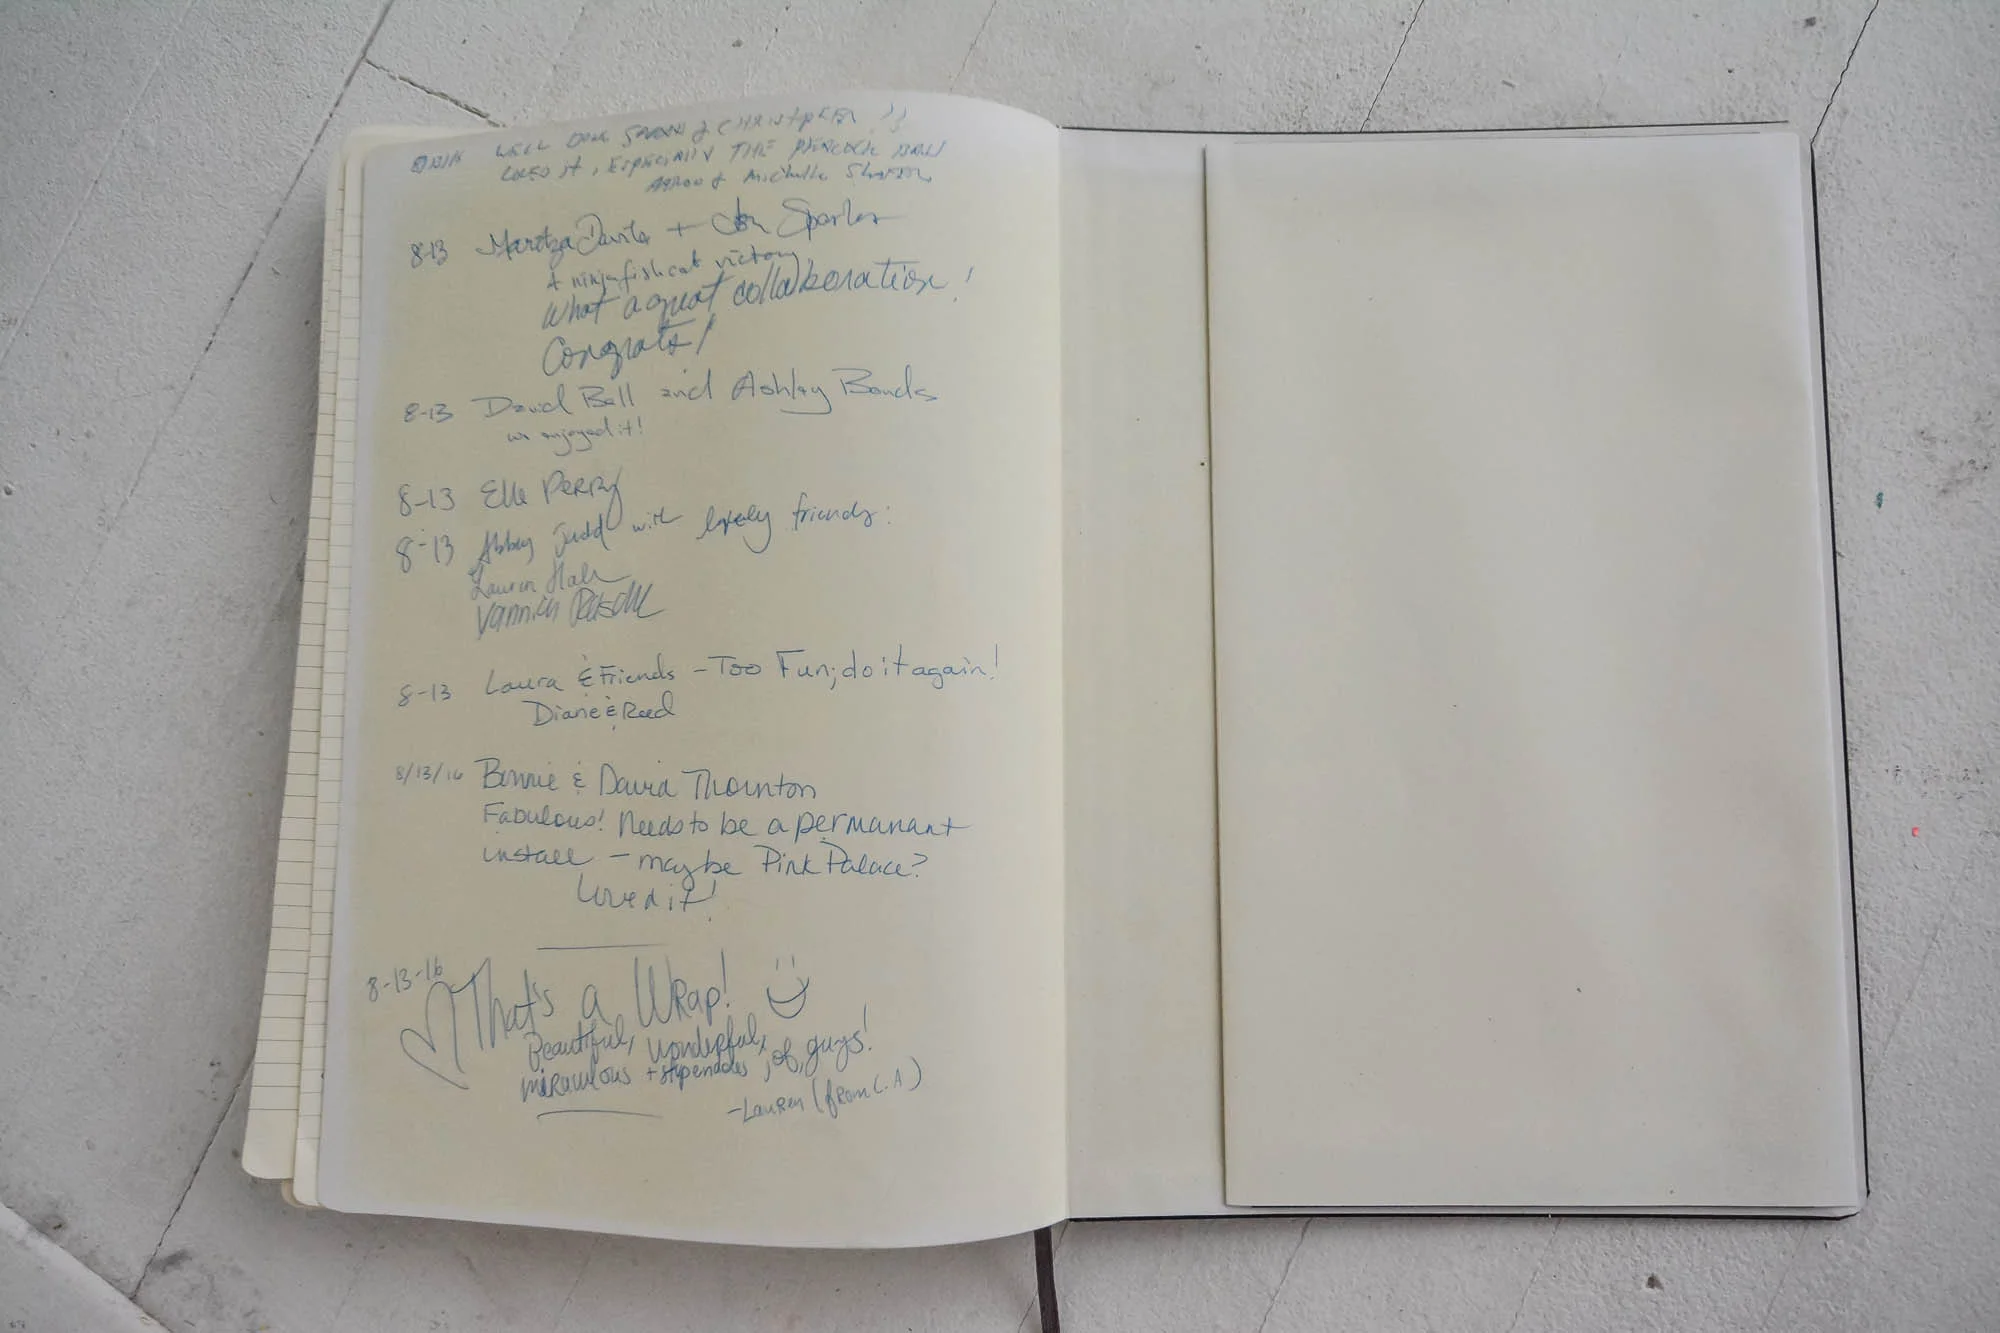 WELL DONE & CHRISTOPHER!!
LOVED IT, ESPECIALLY THE PEACOCK
& Michelle
8-13 Maritza Davila + Jon Sparks
+ ninjafishcat victory
What a great collaboration!
Congrats!
8-13 David Bell and Ashley Bonds
we enjoyed it!
8-13 Elle Perry
8-13 Abbey Judd with lovely friends:
Lauren
Yannick
8-13 Laura & Friends - Too Fun; do it again!
Diane & Reed
8/13/16 Bonnie & David Thornton
Fabulous! Needs to be a permanant
install - maybe Pink Palace?
Loved it!
8-13-16 That's a Wrap!
Beautiful, wonderful,
miraculous + stupendous job, guys!
-Lauren (from L.A)